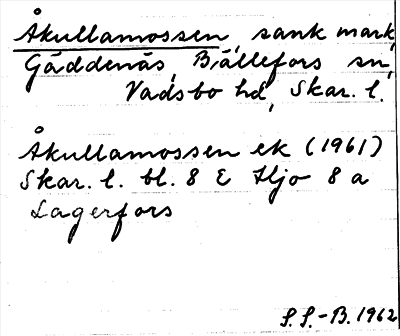 Åkullamossen, sank mark,
Gäddenäs, Bällefors sn,
Vadsbo hd, Skar. l.
Åkullamossen ek (1961)
Skar. l. bl. 8 E Hjo 8 a
Lagerfors
S. S.-B. 1962